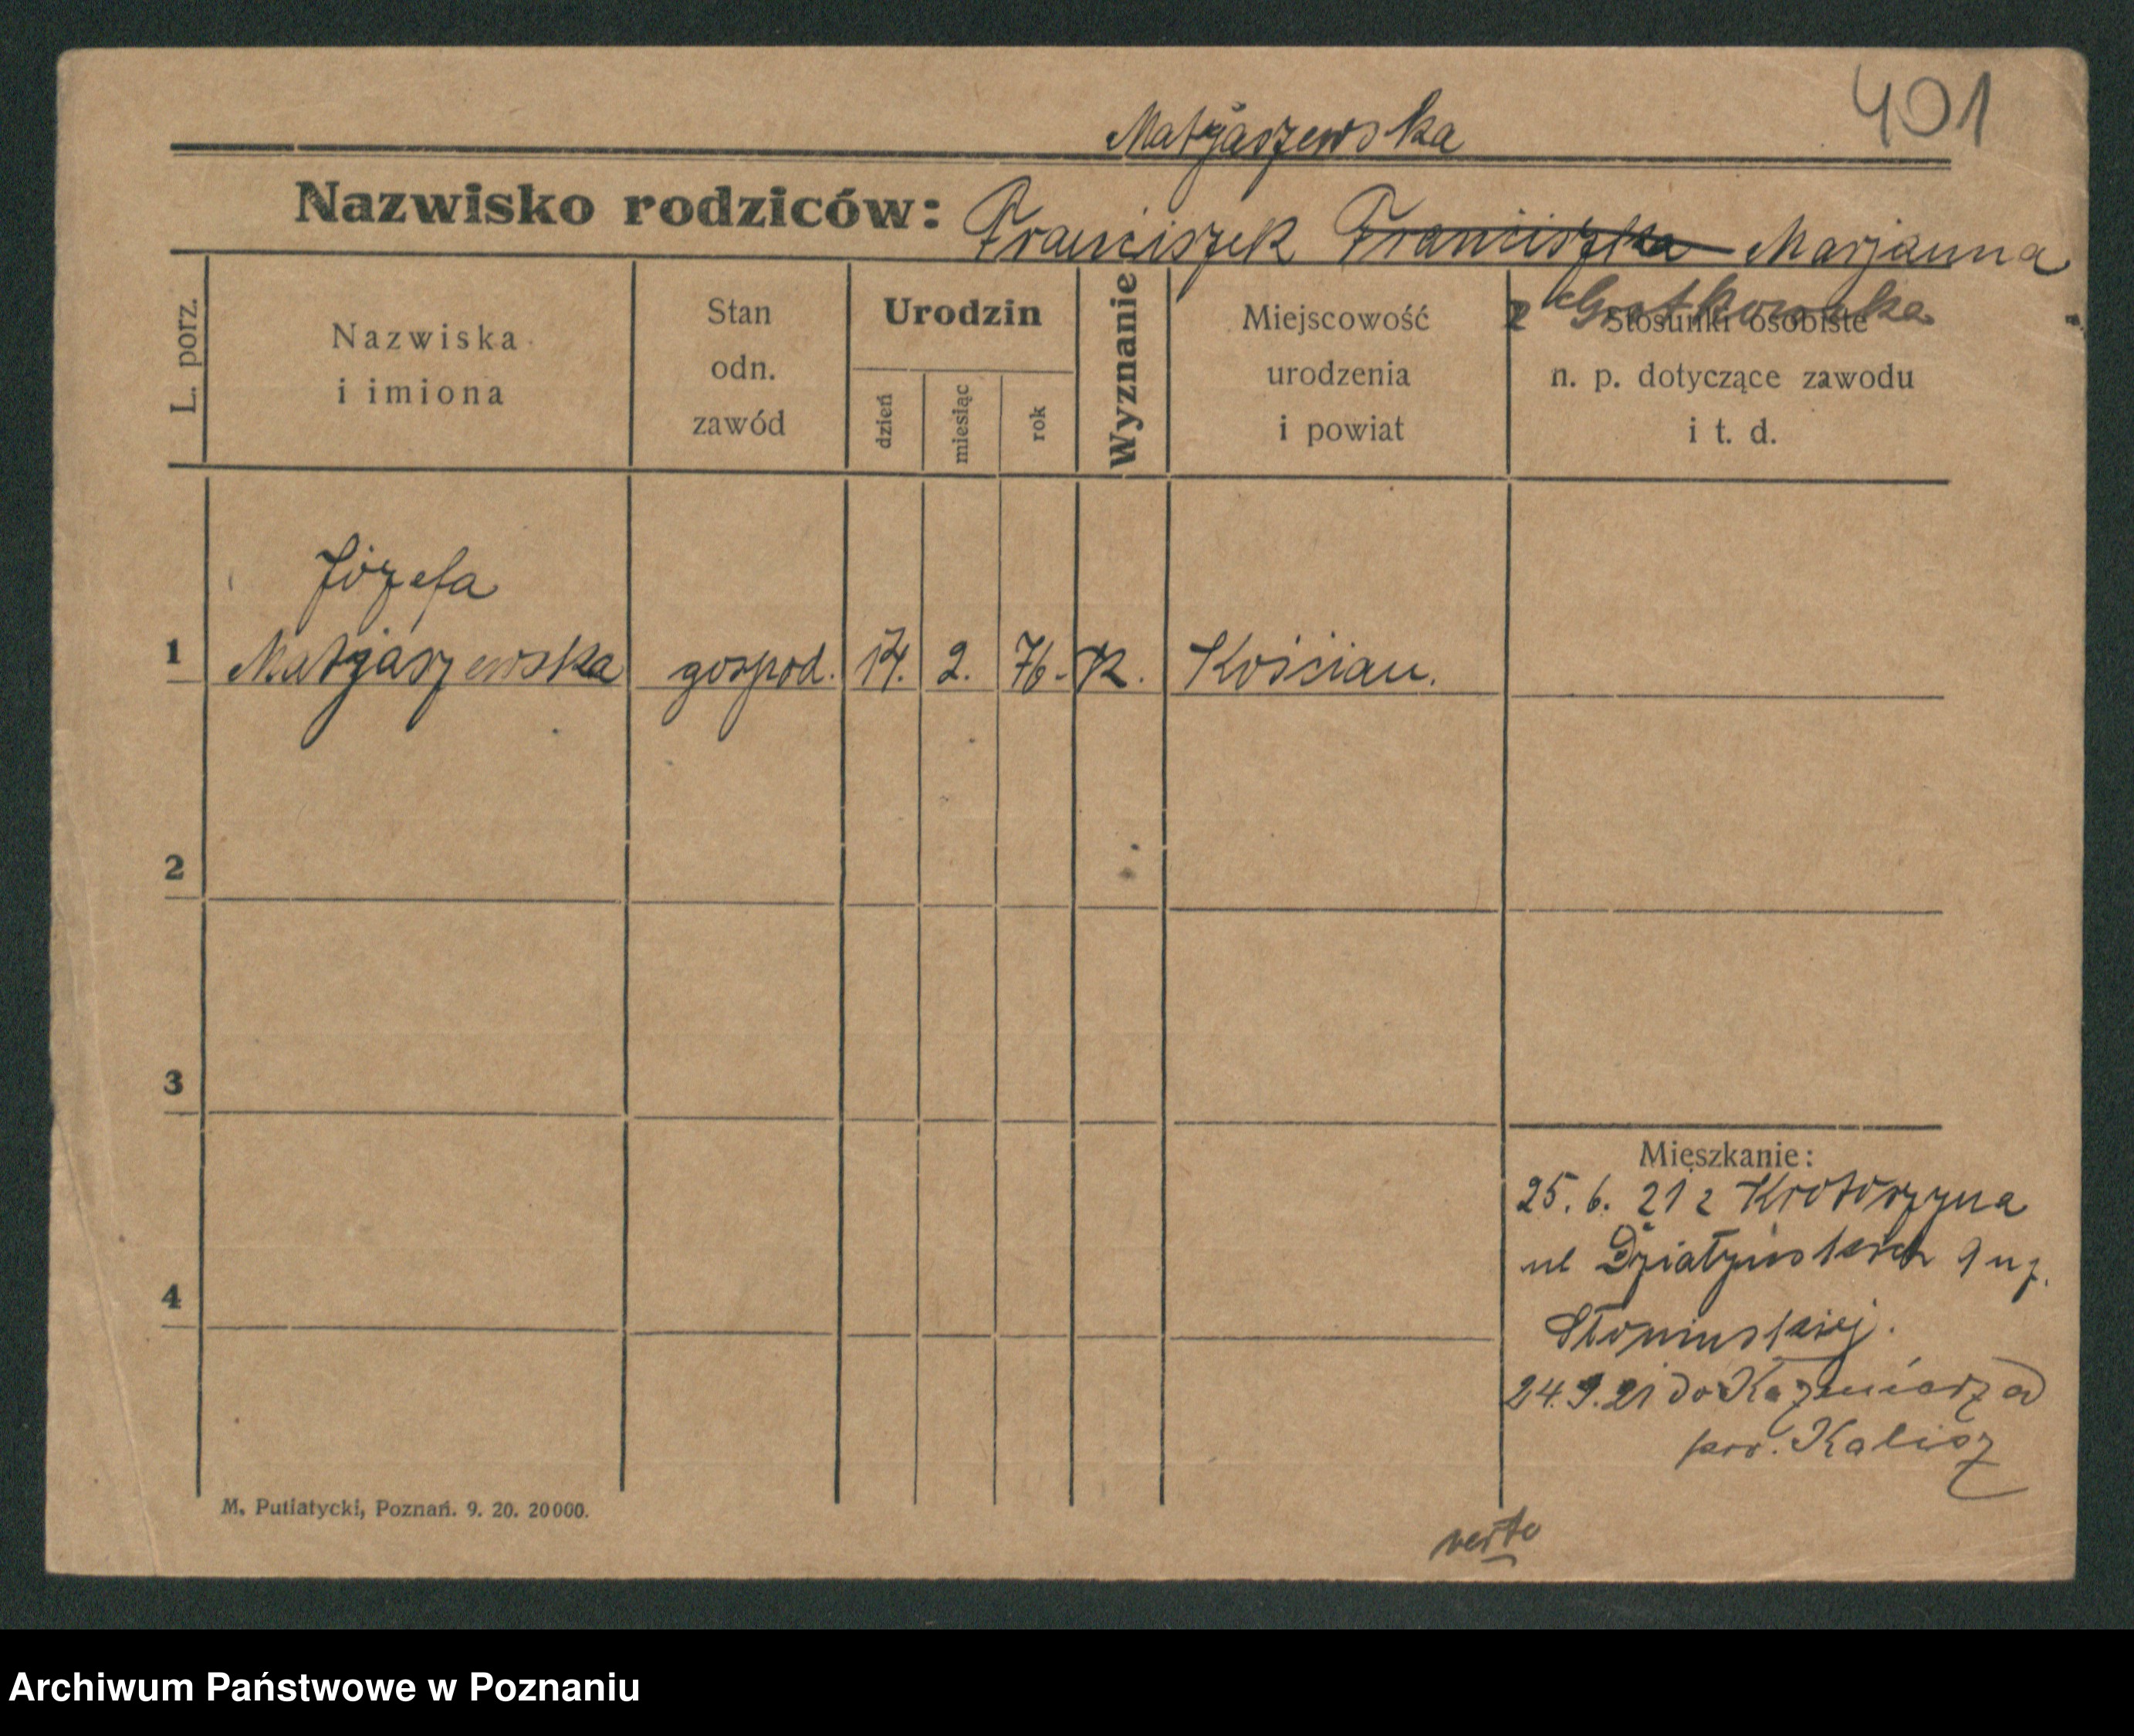 401
Matyaszewska
Nazwisko rodziców: Franciszek Franciszka Marjanna
z Gratkowska
L. porz.
Nazwiska
i imiona
Stan
odn.
zawód
Urodzin
dzień
miesiąc
rok
Wyznanie
Miejscowość
urodzenia
i powiat
Stosunki osobiste
n. p. dotyczące zawodu
i t. d.
Józefa
1 Matyaszewska gospod. 2. 76. K. Kościan.
2
3
4
Mieszkanie:
25. 6. 21 z Krotoszyna
ul Działyńskich 9 u
Słomińskiej.
24.9.21 do Kazmierza
pow. Kalisz
verte
M. Putiatycki, Poznań. 9. 20. 20000.
Archiwum Państwowe w Poznaniu